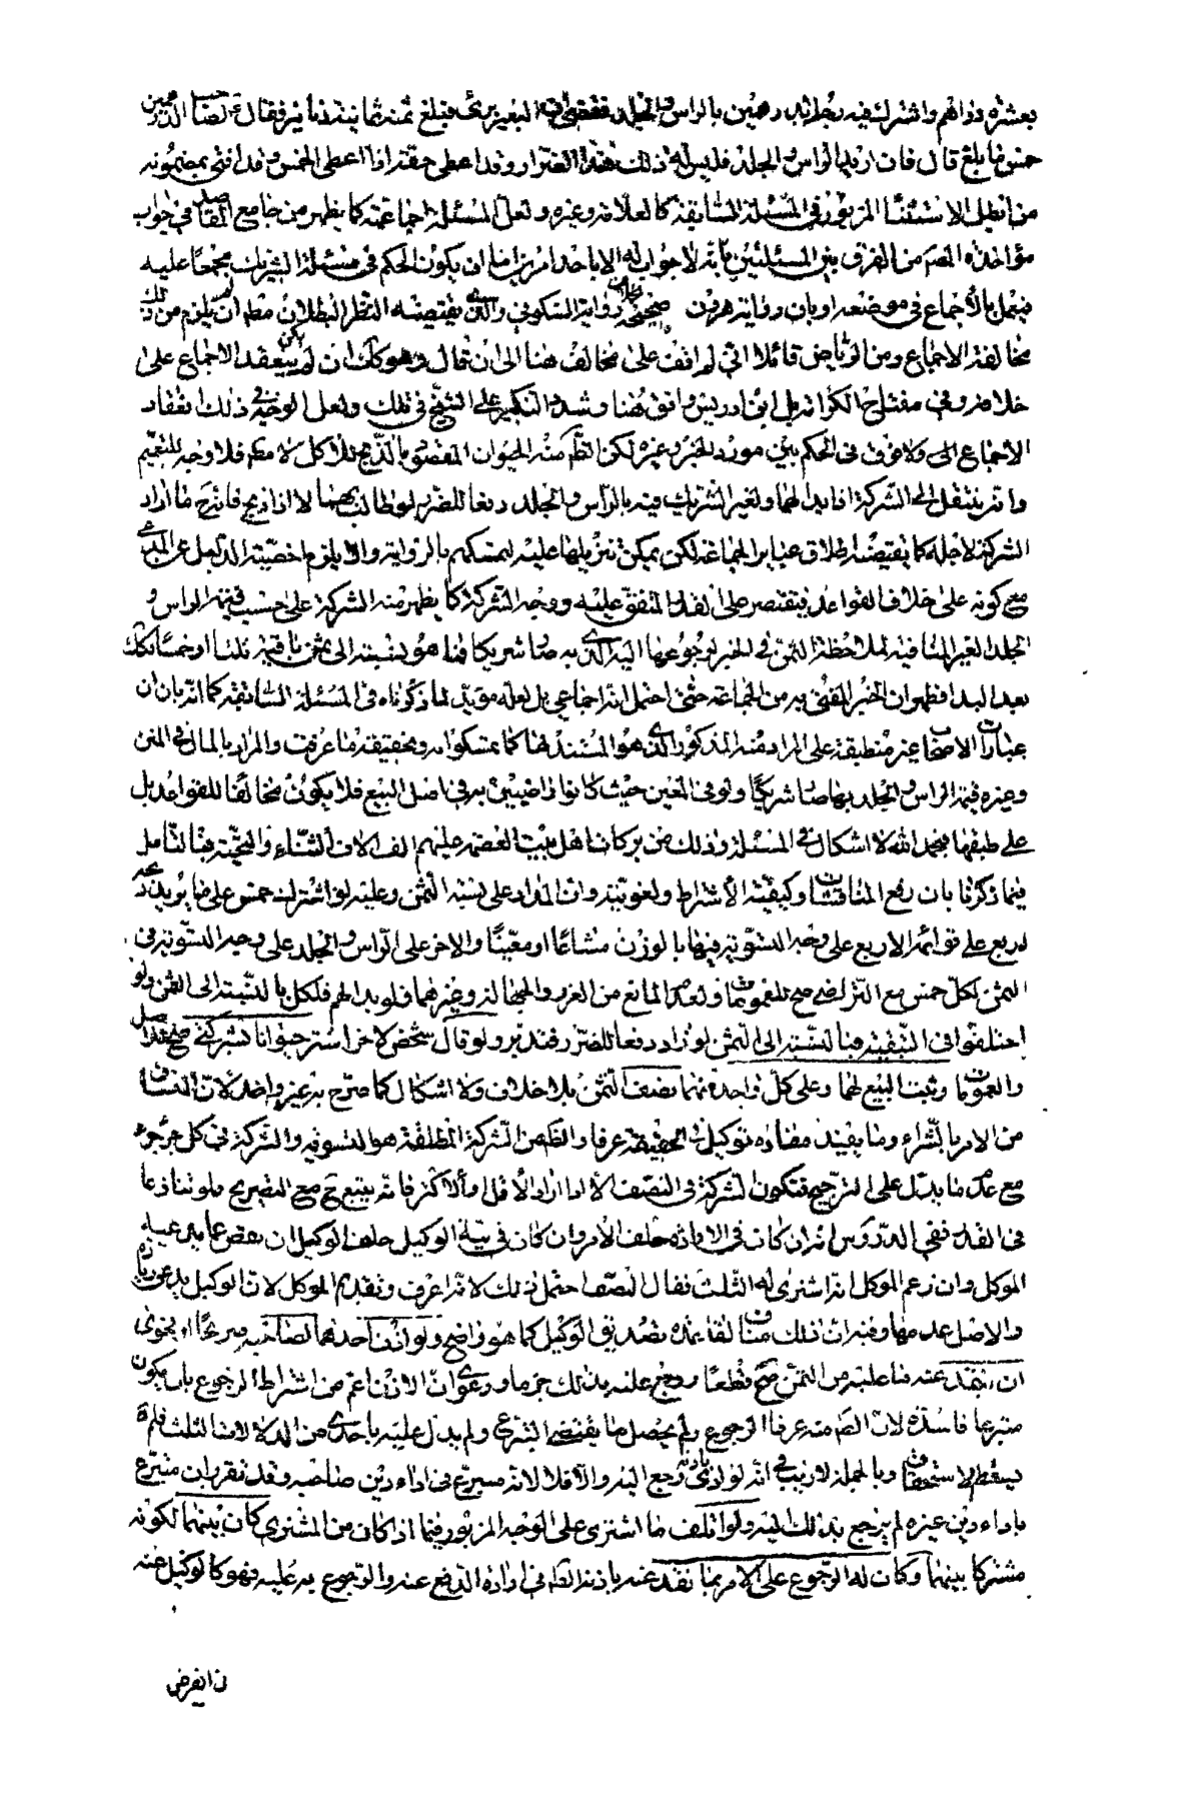 بعشرة دراهم واشترك فيه رجلا بدرهمين بالراس والجلد فقضى ان البعير برئ فبلغ ثمنه ثمانية دنانير فقال لصاحب الدرهمين
خمس ما بلغ قال فان اريد الراس والجلد فليس له ذلك هذا الضرار وقد اعطى حقه اذا اعطى الخمس وقد افتى بمضمونه
من ابطل الاستثناء المزبور في المسئلة السابقة كالعلامة وغيره ولعل المسئلة اجماعية كما يظهر من جامع المقاصد في جواب
مؤاخذة المص من الفرق بين المسئلتين بانه لا جواب له الا باحد امرين اما ان يكون الحكم في مسئلة الشريك مجمعا عليه
فيعمل بالاجماع في موضعه او بان رواية هرون صحيحة بخلاف رواية السكوني والذي يقتضيه النظر البطلان مطلقا ان لم يلزم من ذلك
مخالفة الاجماع ومن الرياض قائلا اني لم اقف على مخالف هنا الى ان قال وهو كذلك ان لم ينعقد الاجماع على
خلافه وفي مفتاح الكرامة بل ابن ادريس وافق هنا وشدد النكير على الشيخ في تلك ولعل الوجه في ذلك انعقاد
الاجماع الى ولا فرق في الحكم بين مورد الخبر وغيره لكن الظ منه الحيوان المقصود بالذبح للاكل لا مطلقا فلا وجه للتعميم
وانه ينتقل الى الشركة اذا بدا لهما ولغير الشريك فيه بالراس والجلد دفعا للضرر لو طالب بهما لا اذا ذبح فانه ح ما اراد
الشركة لاجله كما يقتضيه اطلاق عبائر الجماعة لكن يمكن تنزيلها عليه لتمسكهم بالرواية والا يلزم اخصية الدليل عن المدعى
مع كونه على خلاف القواعد فيقتصر على القدر المتفق عليه ووجه الشركة كما يظهر منه الشركة على حسب قيمة الراس و
الجلد الغير المنافية لملاحظة الثمن في الخبر لرجوعها اليه الذي به صار شريكا فما هو بنسبته الى ثمن باقيه ثلثا او خمسا كذلك
بعد البداء فظهر ان الخبر المفتى به من الجماعة حتى احتمل انه اجماعي بل لعله مؤيد لما ذكرناه في المسئلة السابقة كما انه بان ان
عبارات الاصحاب غير منطبقة على المراد منه المذكور الذي هو المستند لها كما تمسكوا به وتحقيقه ما عرفت والمراد بالمال في المتن
وغيره قيمة الراس والجلد بهما صار شريكا ولو في العين حيث كانوا راضيين به في اصل البيع فلا يكون مخالفا للقواعد بل
على طبقها فبحمد الله لا اشكال في المسئلة وذلك من بركات اهل بيت العصمة عليهم الف الاف الثناء والتحية فبالتامل
فيما ذكرنا بان رفع المناقشات وكيفية الاشتراط ولغويته وان المدار على نسبة الثمن وعليه لو اشترك خمس على ما يؤيد
اربع على قوائمه الاربع على وجه التسوية فيها بالوزن مشاعا او معينا والاخر على الراس والجلد على وجه التسوية في
الثمن لكل خمس مع التراضي صح للعمومات ولعدم المانع من الغرر والجهالة وغيرهما فلو بدا لهم فلكل بالنسبة الى الثمن ولو
اختلفوا في التبقية فبالنسبة الى الثمن لو زاد دفعا للضرر فتدبر ولو قال شخص لاخر اشتر حيوانا بشركتي صح للاصل
والعمومات وثبت البيع لهما وعلى كل واحد منهما نصف الثمن بلا خلاف ولا اشكال كما صرح به غير واحد لان المنساق
من الامر بالشراء وما يفيد مفاده توكيل في الحقيقة عرفا والظ من الشركة المطلقة هو التسوية والشركة في كل جزء جزء
مع عدم ما يدل على الترجيح فتكون الشركة في النصف الا اذا اراد الاقل او الاكثر فانه يتبع ح مع التصريح فلو تنازعا
في القدر ففي الدروس انه ان كان في الارادة حلف الامر وان كان في نية الوكيل حلف الوكيل ان نقص عما يدعيه
الموكل وان زعم الموكل انه اشترى له الثلث فقال النصف احتمل ذلك لانه اعرف وتقديم الموكل لان الوكيل يدعي زيادة
والاصل عدمها وفيه ان ذلك مناف لقاعدة تصديق الوكيل كما هو واضح ولو اذن احدهما لصاحبه صريحا او بفحوى
ان ينقد عنه ما عليه من الثمن صح قطعا ورجع عليه بذلك جزما ودعوى ان الاذن اعم من اشتراط الرجوع بان يكون
متبرعا فاسدة لان الظ منه عرفا الرجوع ولم يحصل ما يقتضي التبرع ولم يدل عليه باحدى من الدلالات الثلث فلم
يسقط الاستحقاق وبالجملة لا ريب في انه لو ادى باذنه رجع اليه والا فلا لانه متبرع في اداء دين صاحبه وقد تقرر ان متبرع
باداء دين غيره لم يرجع بذلك اليه ولو اتلف ما اشترى على الوجه المزبور فيما اذ كان من المشتري كان بينهما لكونه
مشتركا بينهما وكان له الرجوع على الامر بما نقد عنه باذنه الظ في ارادة الدفع عنه والرجوع به عليه فهو كالوكيل عنه
في القرض